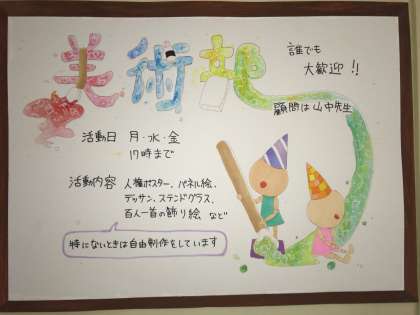 美術部
誰でも
大歓迎!!
顧問は山中先生
活動日 月・水・金
17時まで
活動内容 人権ポスター、パネル絵、
デッサン、ステンドグラス、
百人一首の飾り絵 など
特にないときは自由制作をしています